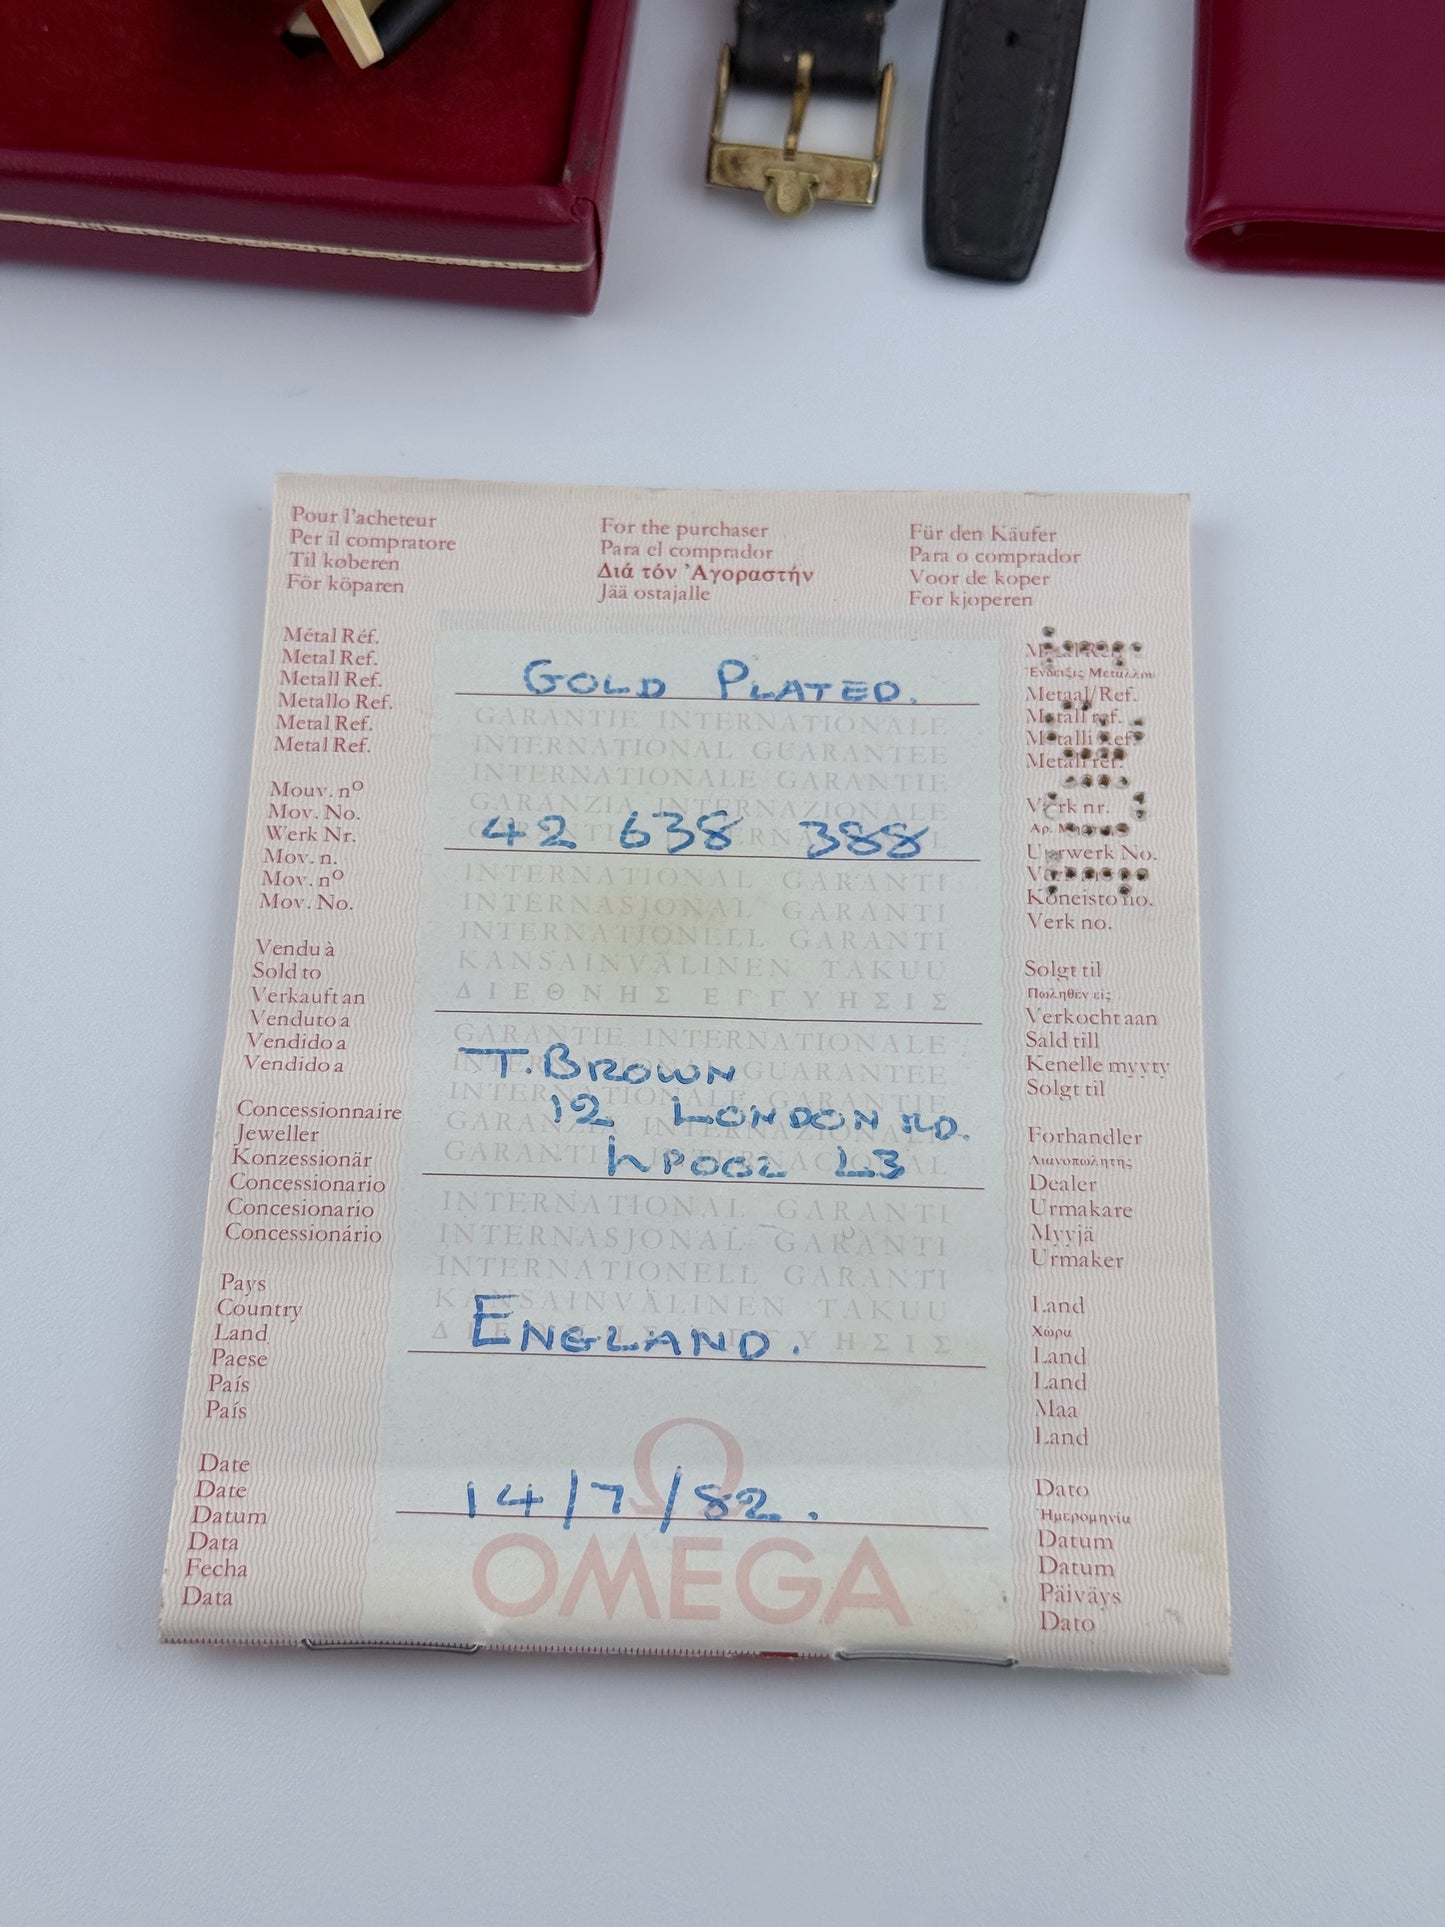 Pour l'acheteur
Per il compratore
Til køberen
För köparen
For the purchaser
Para el comprador
Διά τόν Ἀγοραστήν
Jää ostajalle
Für den Käufer
Para o comprador
Voor de koper
For kjoperen
Métal Réf.
Metal Ref.
Metall Ref.
Metallo Ref.
Metal Ref.
Metal Ref.
GOLD PLATED.
Ἔνδειξις Μετάλλου
Metaal/Ref.
Metall ref.
Metalli Ref.
Metall ref.
GARANTIE INTERNATIONALE
INTERNATIONAL GUARANTEE
INTERNATIONALE GARANTIE
GARANZIA INTERNAZIONALE
Mouv. nº
Mov. No.
Werk Nr.
Mov. n.
Mov. nº
Mov. No.
42 638 388
Verk nr.
Uurwerk No.
Koneisto no.
Verk no.
INTERNATIONAL GARANTI
INTERNASJONAL GARANTI
INTERNATIONELL GARANTI
KANSAINVÄLINEN TAKUU
ΔΙΕΘΝΗΣ ΕΓΓΥΗΣΙΣ
Vendu à
Sold to
Verkauft an
Venduto a
Vendido a
Vendido a
Solgt til
Πωληθέν είς
Verkocht aan
Sald till
Kenelle myyty
Solgt til
GARANTIE INTERNATIONALE
INTERNATIONAL GUARANTEE
INTERNATIONALE GARANTIE
GARANZIA INTERNAZIONALE
T. BROWN
12 LONDON RD.
LPOOL L3
Concessionnaire
Jeweller
Konzessionär
Concessionario
Concesionario
Concessionário
Forhandler
Λιανοπωλητής
Dealer
Urmakare
Myyjä
Urmaker
INTERNATIONAL GARANTI
INTERNASJONAL GARANTI
INTERNATIONELL GARANTI
KANSAINVÄLINEN TAKUU
ΔΙΕΘΝΗΣ ΕΓΓΥΗΣΙΣ
Pays
Country
Land
Paese
País
País
ENGLAND.
Land
Χώρα
Land
Land
Maa
Land
Date
Date
Datum
Data
Fecha
Data
14/7/82.
Dato
Ἡμερομηνία
Datum
Datum
Päiväys
Dato
Ω
OMEGA